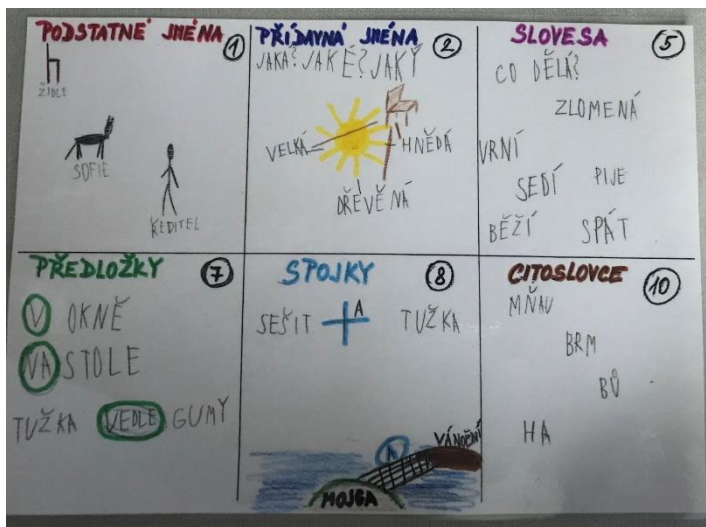 PODSTATNÉ JMÉNA 1
ŽIDLE
SOFIE
ŘEDITEL
PŘÍDAVNÁ JMÉNA 2
JAKÁ? JAKÉ? JAKÝ
VELKÁ
HNĚDÁ
DŘÍVĚNÁ
SLOVESA 5
CO DĚLÁ?
ZLOMENÁ
VRNÍ
SEDÍ PIJE
BĚŽÍ SPÁT
PŘEDLOŽKY 7
V OKNĚ
NA STOLE
TUŽKA VEDLE GUMY
SPOJKY 8
SEŠIT A TUŽKA
A
VÁNOČNÍ
MOJGA
CITOSLOVCE 10
MŇAU
BRM
BŮ
HA